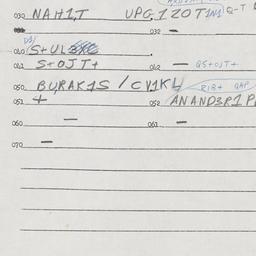 030 NAH1T UPG1Z0T1N1 Q-T
032 -
D31
040 S+UL
041 S+OJT+ 042 - QS+OJT+
050 BURAK1S / CV1KL R1B+ GAP
051 + 052 ANAND3R1P
060 - 061 -
070 -